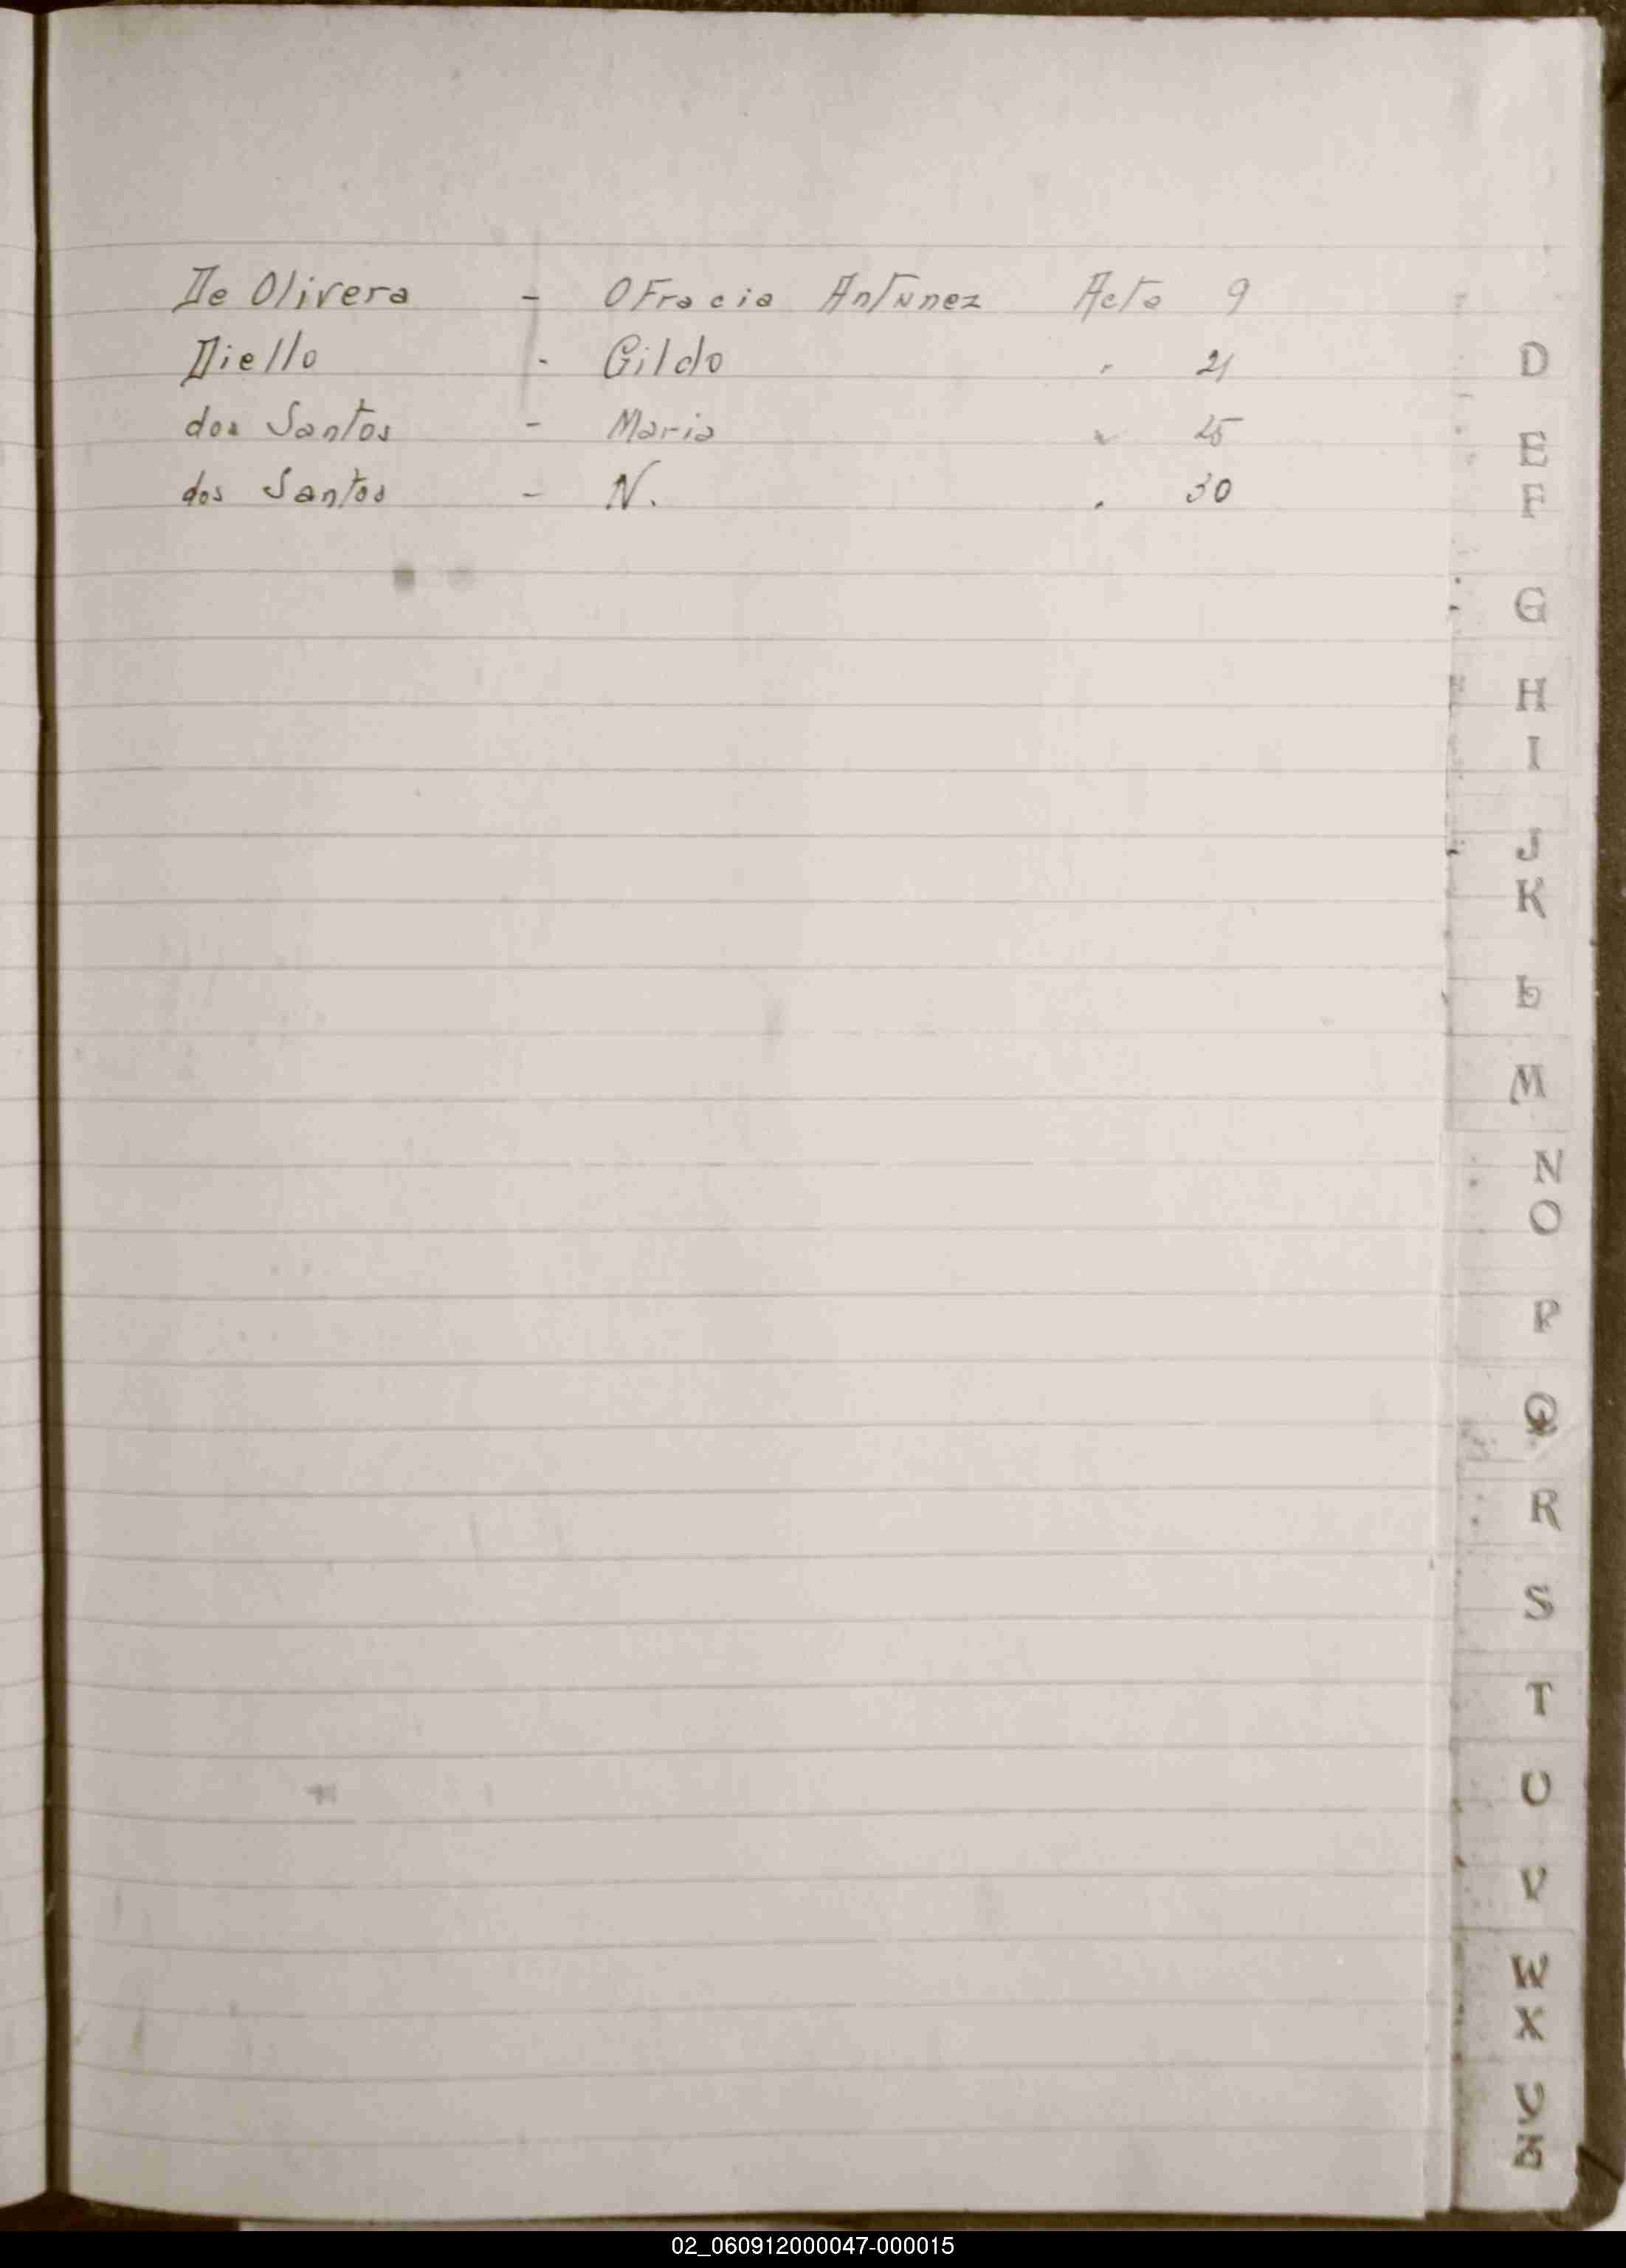 De Olivera - OFracia Antunez Acta 9
Diello - Gildo " 21
dos Santos - Maria " 25
dos Santos - N. " 30
D
E
F
G
H
I
J
K
L
M
N
O
P
Q
R
S
T
U
V
W
X
02_060912000047-000015